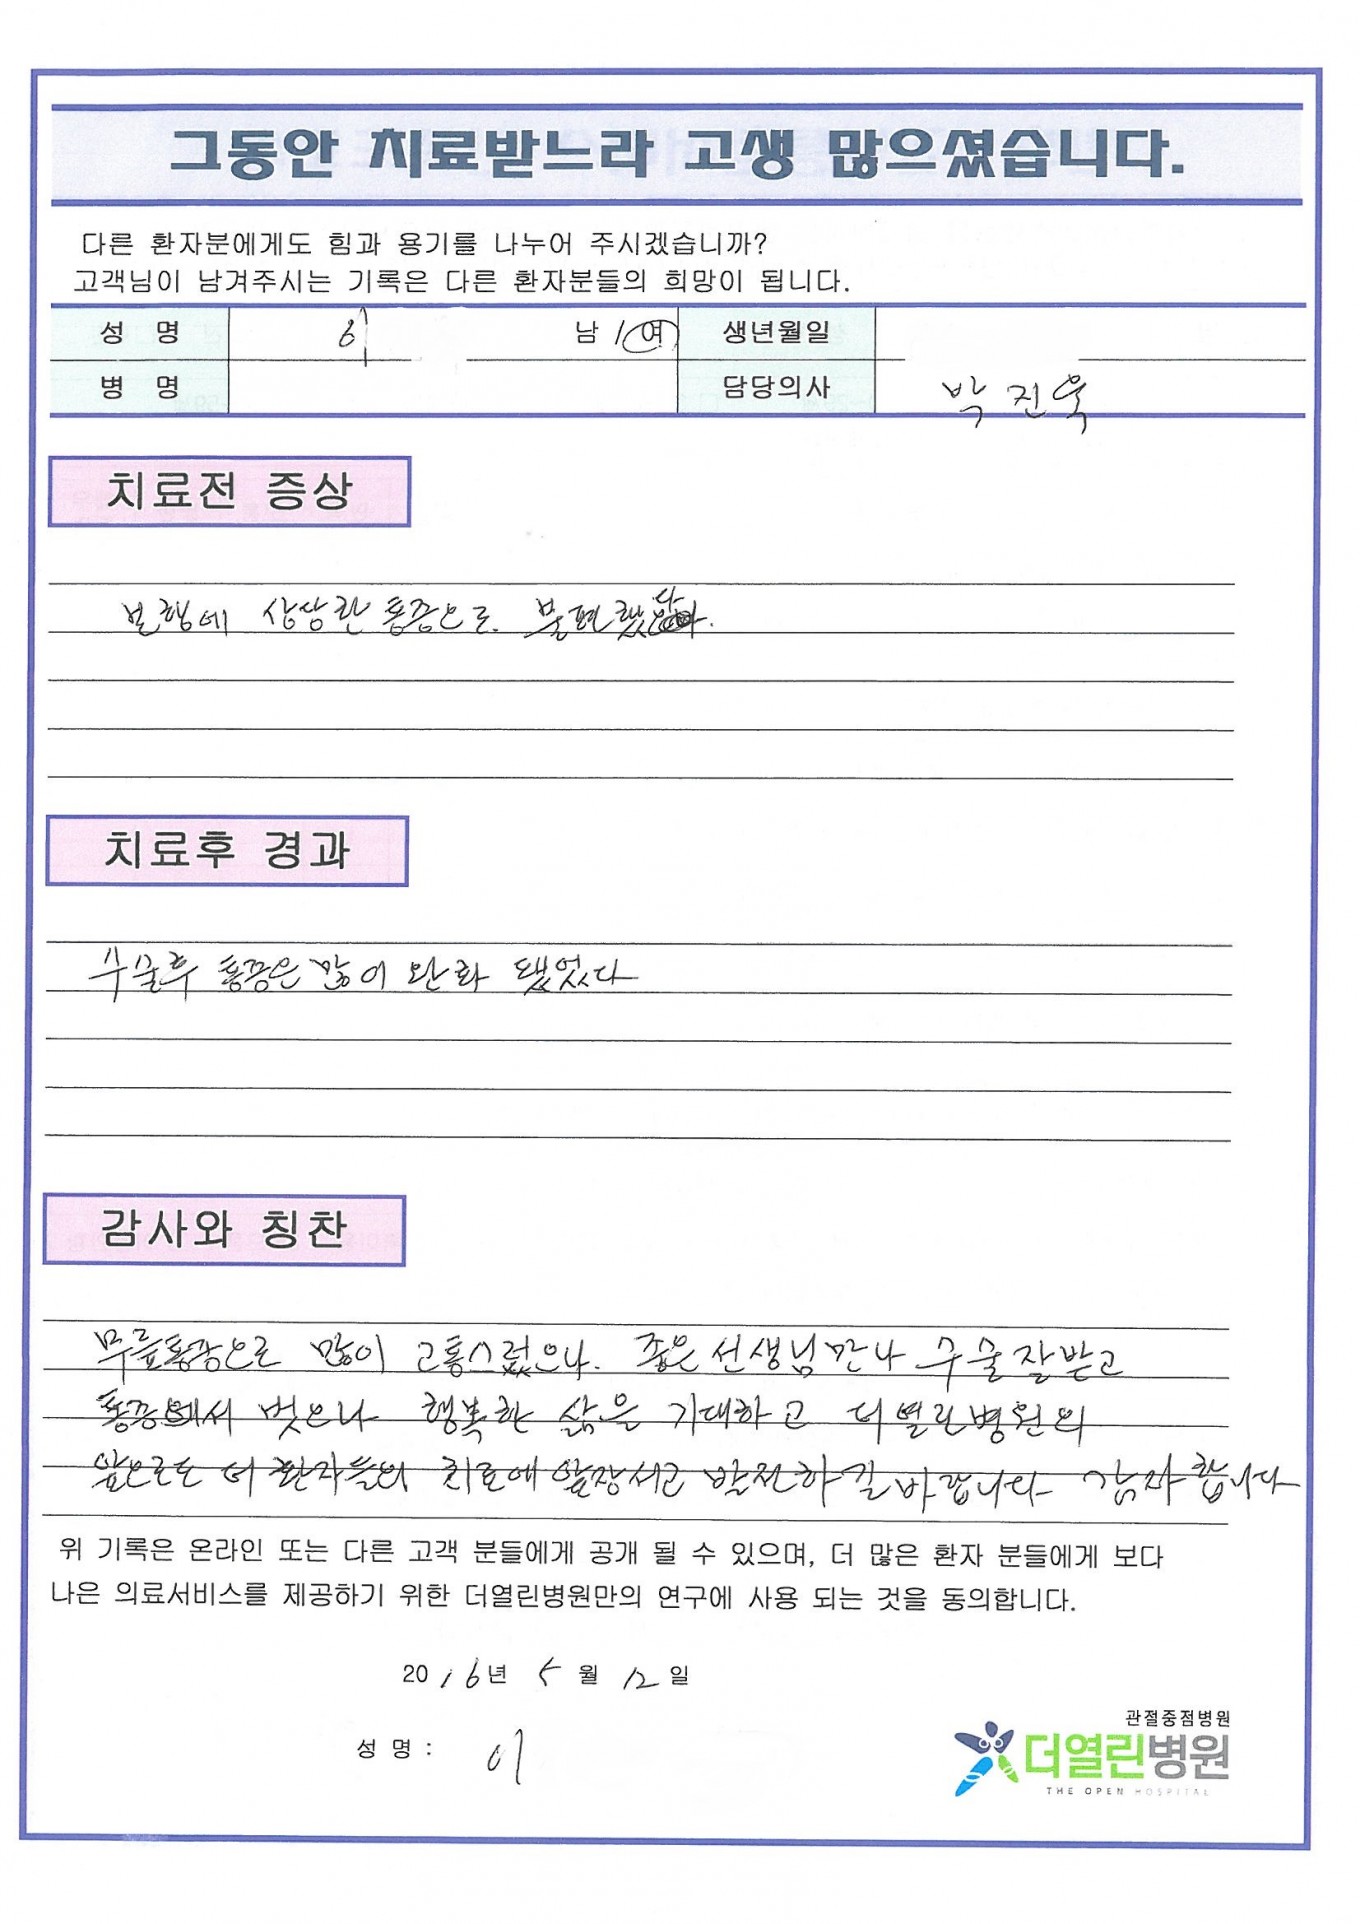 그동안 치료받느라 고생 많으셨습니다.
다른 환자분에게도 힘과 용기를 나누어 주시겠습니까?
고객님이 남겨주시는 기록은 다른 환자분들의 희망이 됩니다.
성 명 이 남 / 여 생년월일
병 명 담당의사 박진욱
치료전 증상
보행에 상상한 통증으로 불편했다.
치료후 경과
수술후 통증은 많이 완화 됐었다
감사와 칭찬
무릎통증으로 많이 고통스렀으나. 좋은 선생님 만나 수술 잘받고
통증에서 벗으나 행복한 삶을 기대하고 더열린병원의
앞으로도 더 환자들의 치료에 앞장서고 발전하길 바랍니다 감사합니다
위 기록은 온라인 또는 다른 고객 분들에게 공개 될 수 있으며, 더 많은 환자 분들에게 보다
나은 의료서비스를 제공하기 위한 더열린병원만의 연구에 사용 되는 것을 동의합니다.
2016년 5월 12일
성 명 : 이
관절중점병원
더열린병원
THE OPEN HOSPITAL